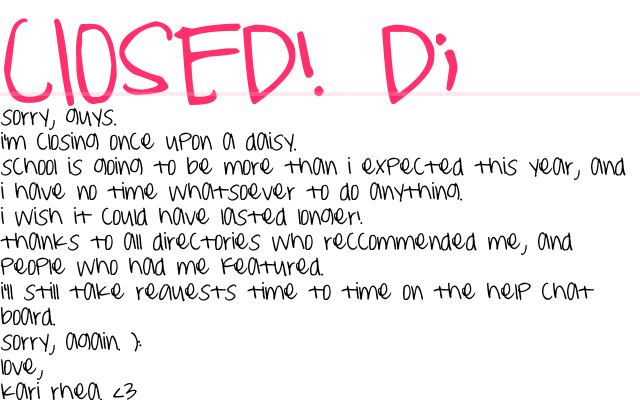 ClOSED! Di
sorry, guys.
i'm closing once upon a daisy.
school is going to be more than i expected this year, and
i have no time whatsoever to do anything.
i wish it could have lasted longer!
thanks to all directories who reccommended me, and
people who had me featured.
i'll still take requests time to time on the help chat
board.
sorry, again ):
love,
kari rhea <3